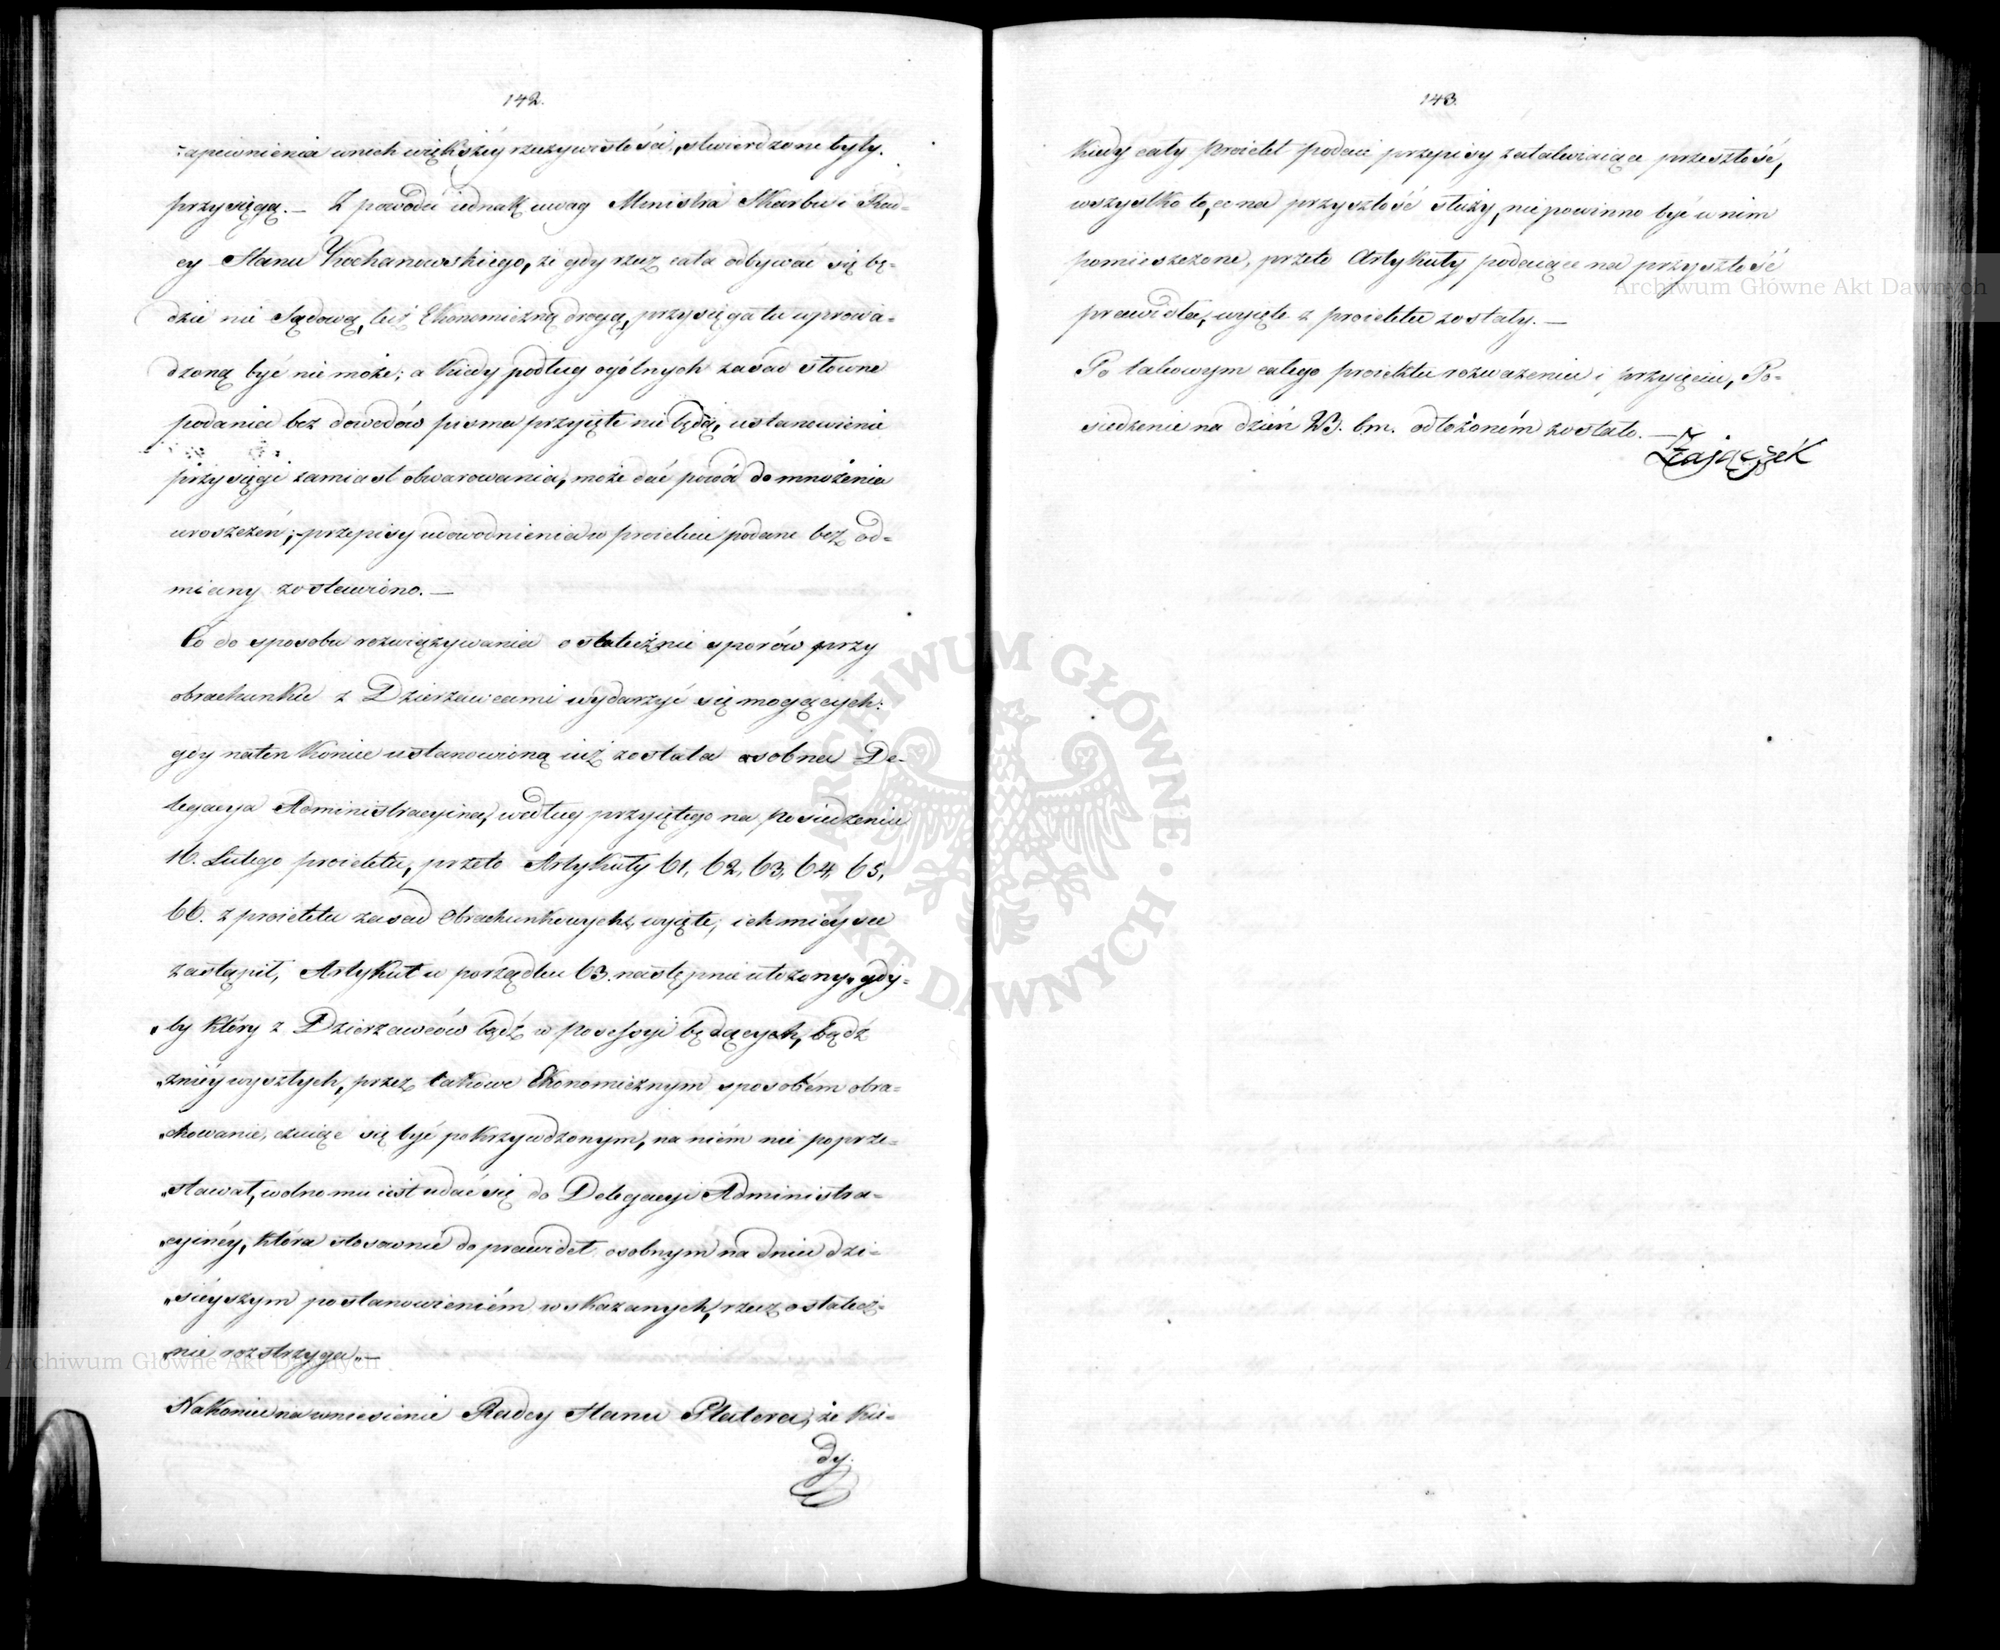 142.
zapewnienia w nich większéy rzeczywistości, stwierdzone były.
przysięgą. — Z powodu iednak uwag Ministra Skarbu i Rad-
cy Stanu Kochanowskiego, że gdy rzecz cała odbywać się bę-
dzie nie Sądową, lecz Ekonomiczną drogą, przysięga tu uprowa-
dzoną być nie może; a kiedy podług ogólnych zasad słowne
podania bez dowodów pisma przyięte nie będą, ustanowienie
przysięgi zamiast obwarowania, może dać powód do mnożenia
uroszczeń; przepisy udowodnienia w proiekcie podane bez od-
miany zostawiono. —
Co do sposobu rozwiązywania ostatecznie sporów przy
obrachunku z Dzierżawcami wydarzyć się mogących:
gdy na ten koniec ustanowioną iuż została osobna De-
legacya Administracyina, według przyiętego na Posiedzeniu
16. Lutego proiektu, przeto Artykuły 61, 62, 63, 64, 65,
66. z proiektu zasad Obrachunkowych, wyięte, ich mieysce
zastąpił, Artykuł w porządku 63. następnie ułożony „gdy-
„by który z Dzierzawców bądź w possessyi będących, bądź
„zniéy wyszłych, przez takowe Ekonomicznym sposobem obra-
„chowanie, czuiąc się być pokrzywdzonym, na niém nie poprze-
„stawał, wolno mu iest udać się do Delegacyi Administra-
„cyinéy, która stosownie do prawideł osobnym na dniu dzi-
„sieyszym postanowieniém wskazanych, rzecz ostatecz-
„nie rozstrzyga„ —
Nakoniec na wniesienie Radcy Stanu Platera, że kie-
dy.
143.
kiedy cały Proiekt podaie przepisy załatwiaiące przeszłość,
wszystko to, co na przyszłość służy, nie powinno być w nim
pomieszczone, przeto Artykuły podaiące na przyszłość
prawidła, wyięte z proiektu zostały. —
Po takowym całego proiektu rozważeniu i przyięciu, Po-
siedzenie na dzień 23. bm. odłożoném zostało. —
Zajączek
ARCHIWUM GŁÓWNE AKT DAWNYCH
Archiwum Główne Akt Dawnych
Archiwum Główne Akt Dawnych